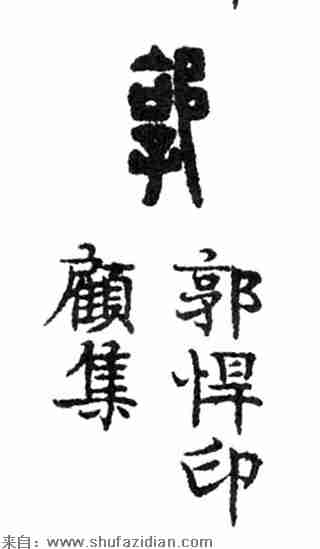 郭
郭悍印
顧集
来自：www.shufazidian.com